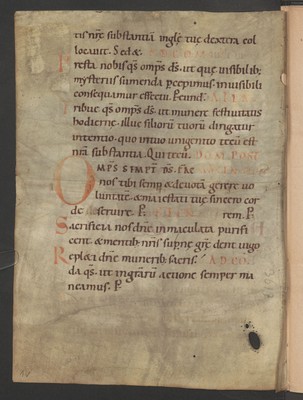 tis nr̄e substantiā in gl̄ę tuę dextera col
locauit. Sed &
P resta nobis qs̄ omp̄s d̄s. ut quę uisibilib;
mysteriis sumenda p̄cepimus. inuisibili
consequamur effectu. P
T ribue qs̄ omp̄s d̄s. ut munere festiuitatis
hodierne. illuc filiorū tuorū dirigatur
intentio. quo in tuo unigenito tecū est
nr̄a substantia. Qui tecū. DOM POST
O MP̄S SEMPIT D̄S. FAC
nos tibi semp̄ & deuotā gerere uo
luntatē. & maiestati tuę sincero cor
de seruire. P rem. P
S acrificia nos dn̄e inmaculata purifi
cent. & mentib; nr̄is sup̄nę gr̄ę dent uigo
R epl&i dn̄e munerib; sacris. AD CO
da qs̄. ut in gratiarū actione semper ma
neamus. P